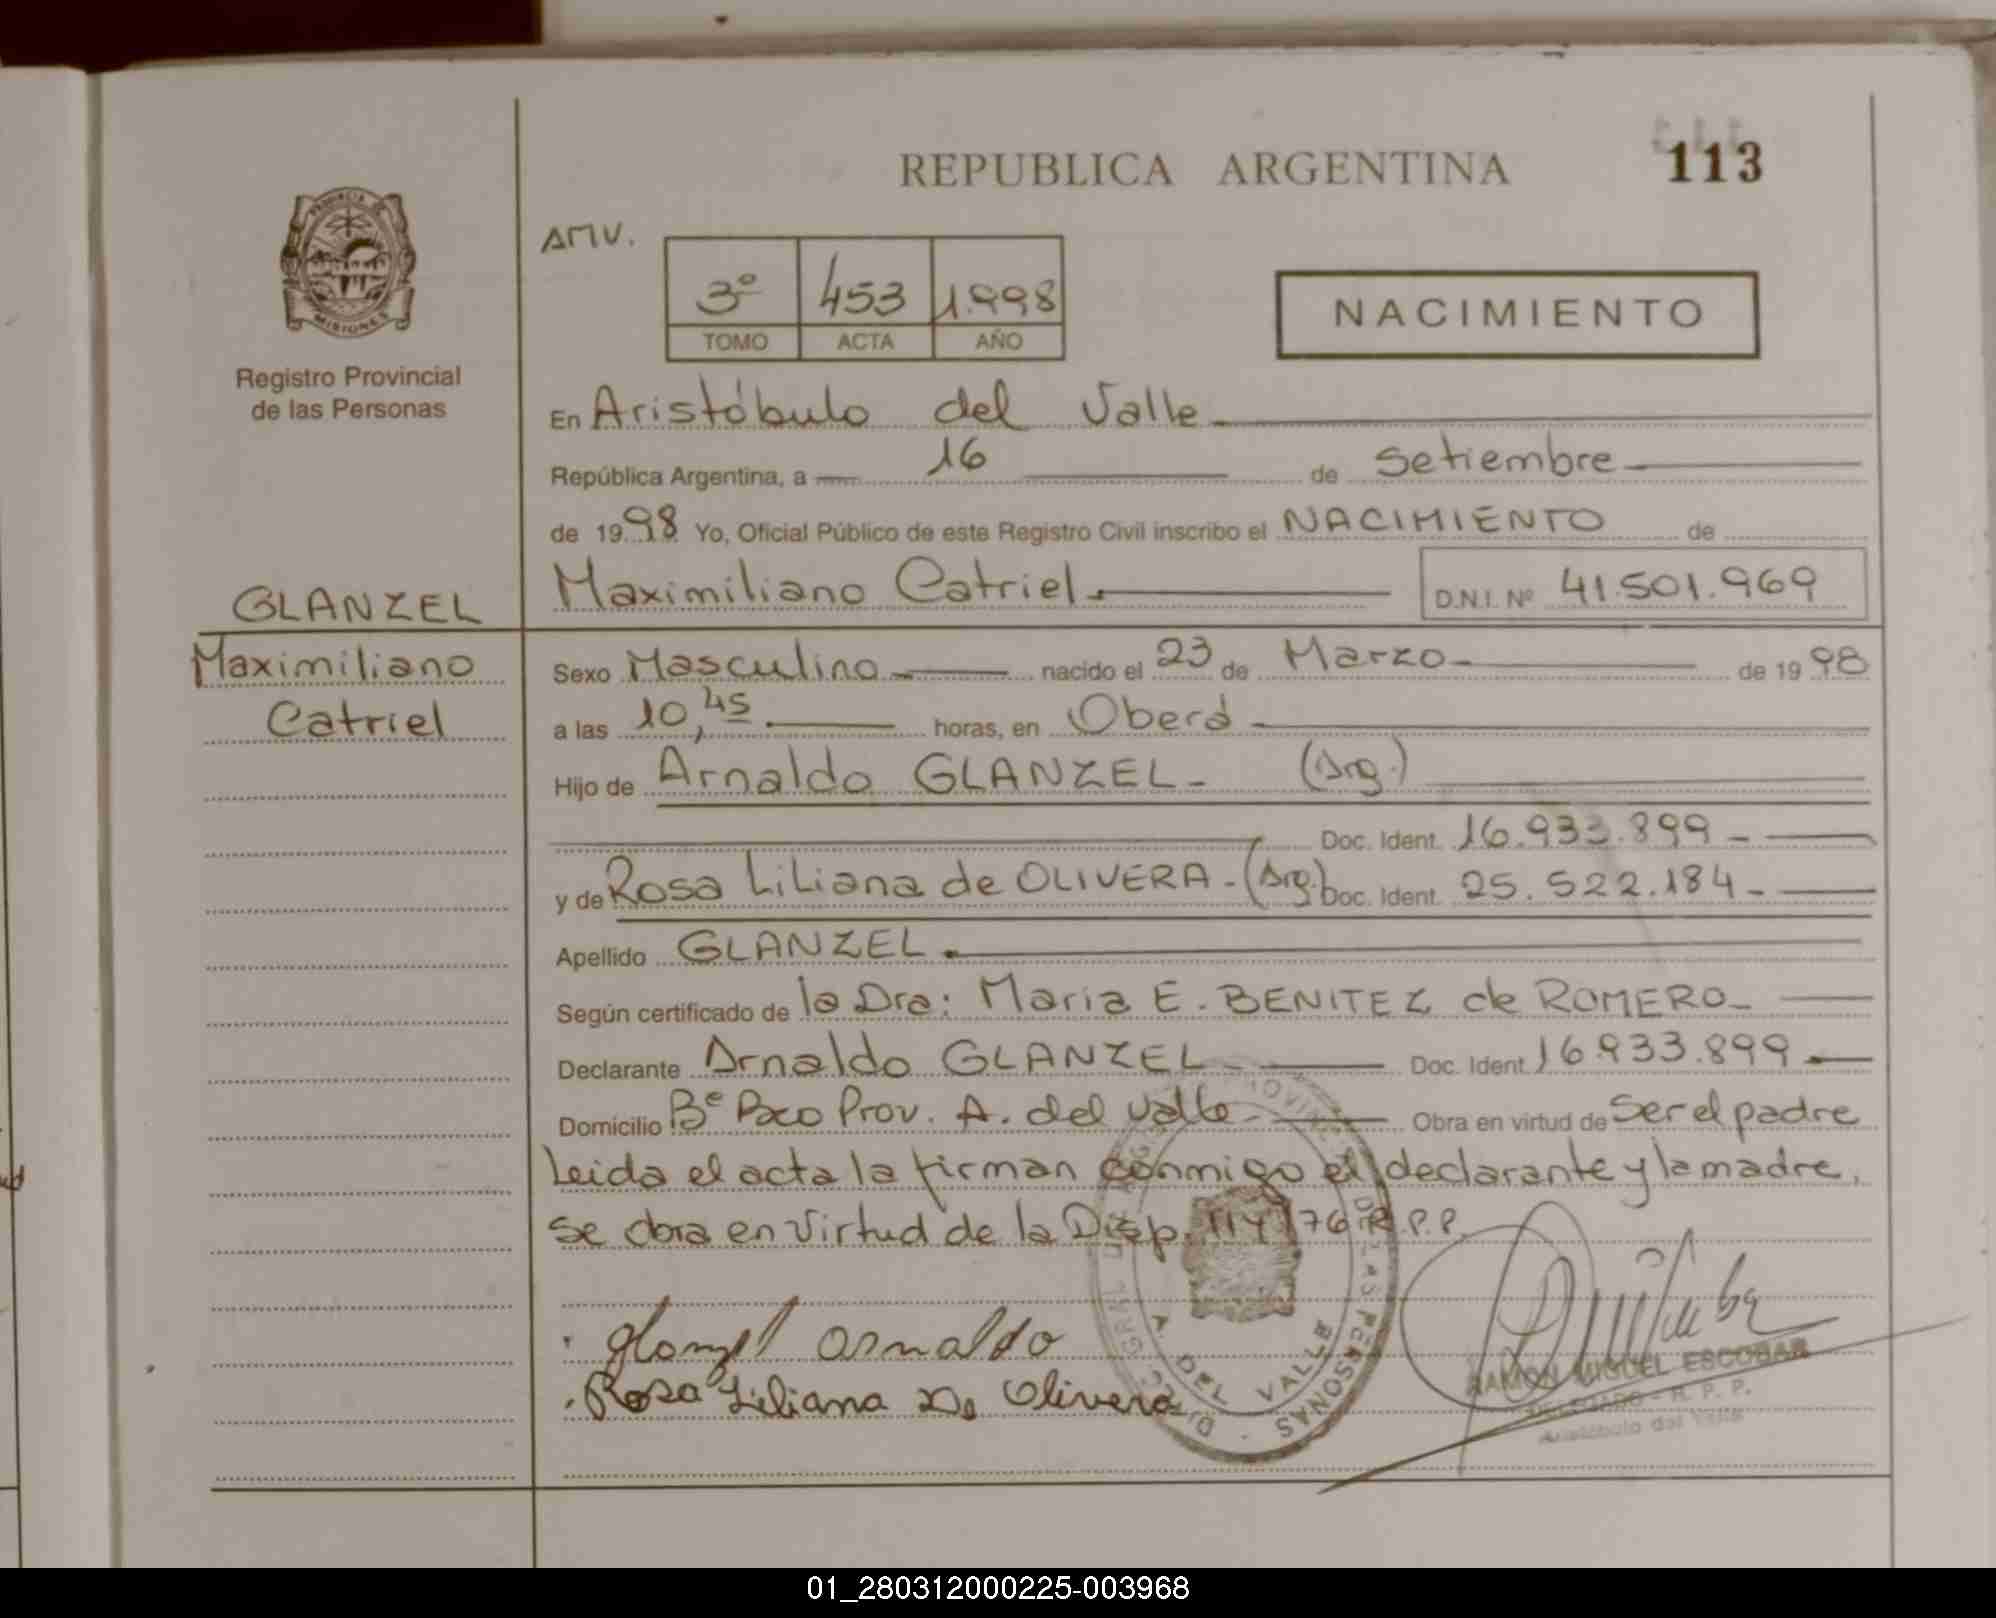 REPUBLICA ARGENTINA
113
PROVINCIA DE
MISIONES
Registro Provincial
de las Personas
AMV.
3º 453 1.998
TOMO ACTA AÑO
NACIMIENTO
En Aristóbulo del Valle
República Argentina, a 16 de Setiembre
de 1998 Yo, Oficial Público de este Registro Civil inscribo el NACIMIENTO de
GLANZEL
Maximiliano
Catriel
Maximiliano Catriel. D.N.I. Nº 41.501.969
Sexo Masculino nacido el 23 de Marzo de 1998
a las 10,45 horas, en Oberá
Hijo de Arnaldo GLANZEL - (Arg.)
Doc. Ident. 16.933.899 -
y de Rosa Liliana de OLIVERA - (Arg.) Doc. Ident. 25.522.184 -
Apellido GLANZEL.
Según certificado de la Dra: Maria E. BENITEZ de ROMERO -
Declarante Arnaldo GLANZEL Doc. Ident. 16.933.899.
Domicilio Bº Paco Prov. A. del Valle Obra en virtud de Ser el padre
Leida el acta la firman conmigo el declarante y la madre.
Se obra en virtud de la Disp. 114/76 R.P.P.
Glanzel Arnaldo
Rosa Liliana De Olivera
A. DEL VALLE
DE LAS PERSONAS
RAMON MIGUEL ESCOBAR
DELEGADO - R. P. P.
Aristóbulo del Valle
01_280312000225-003968